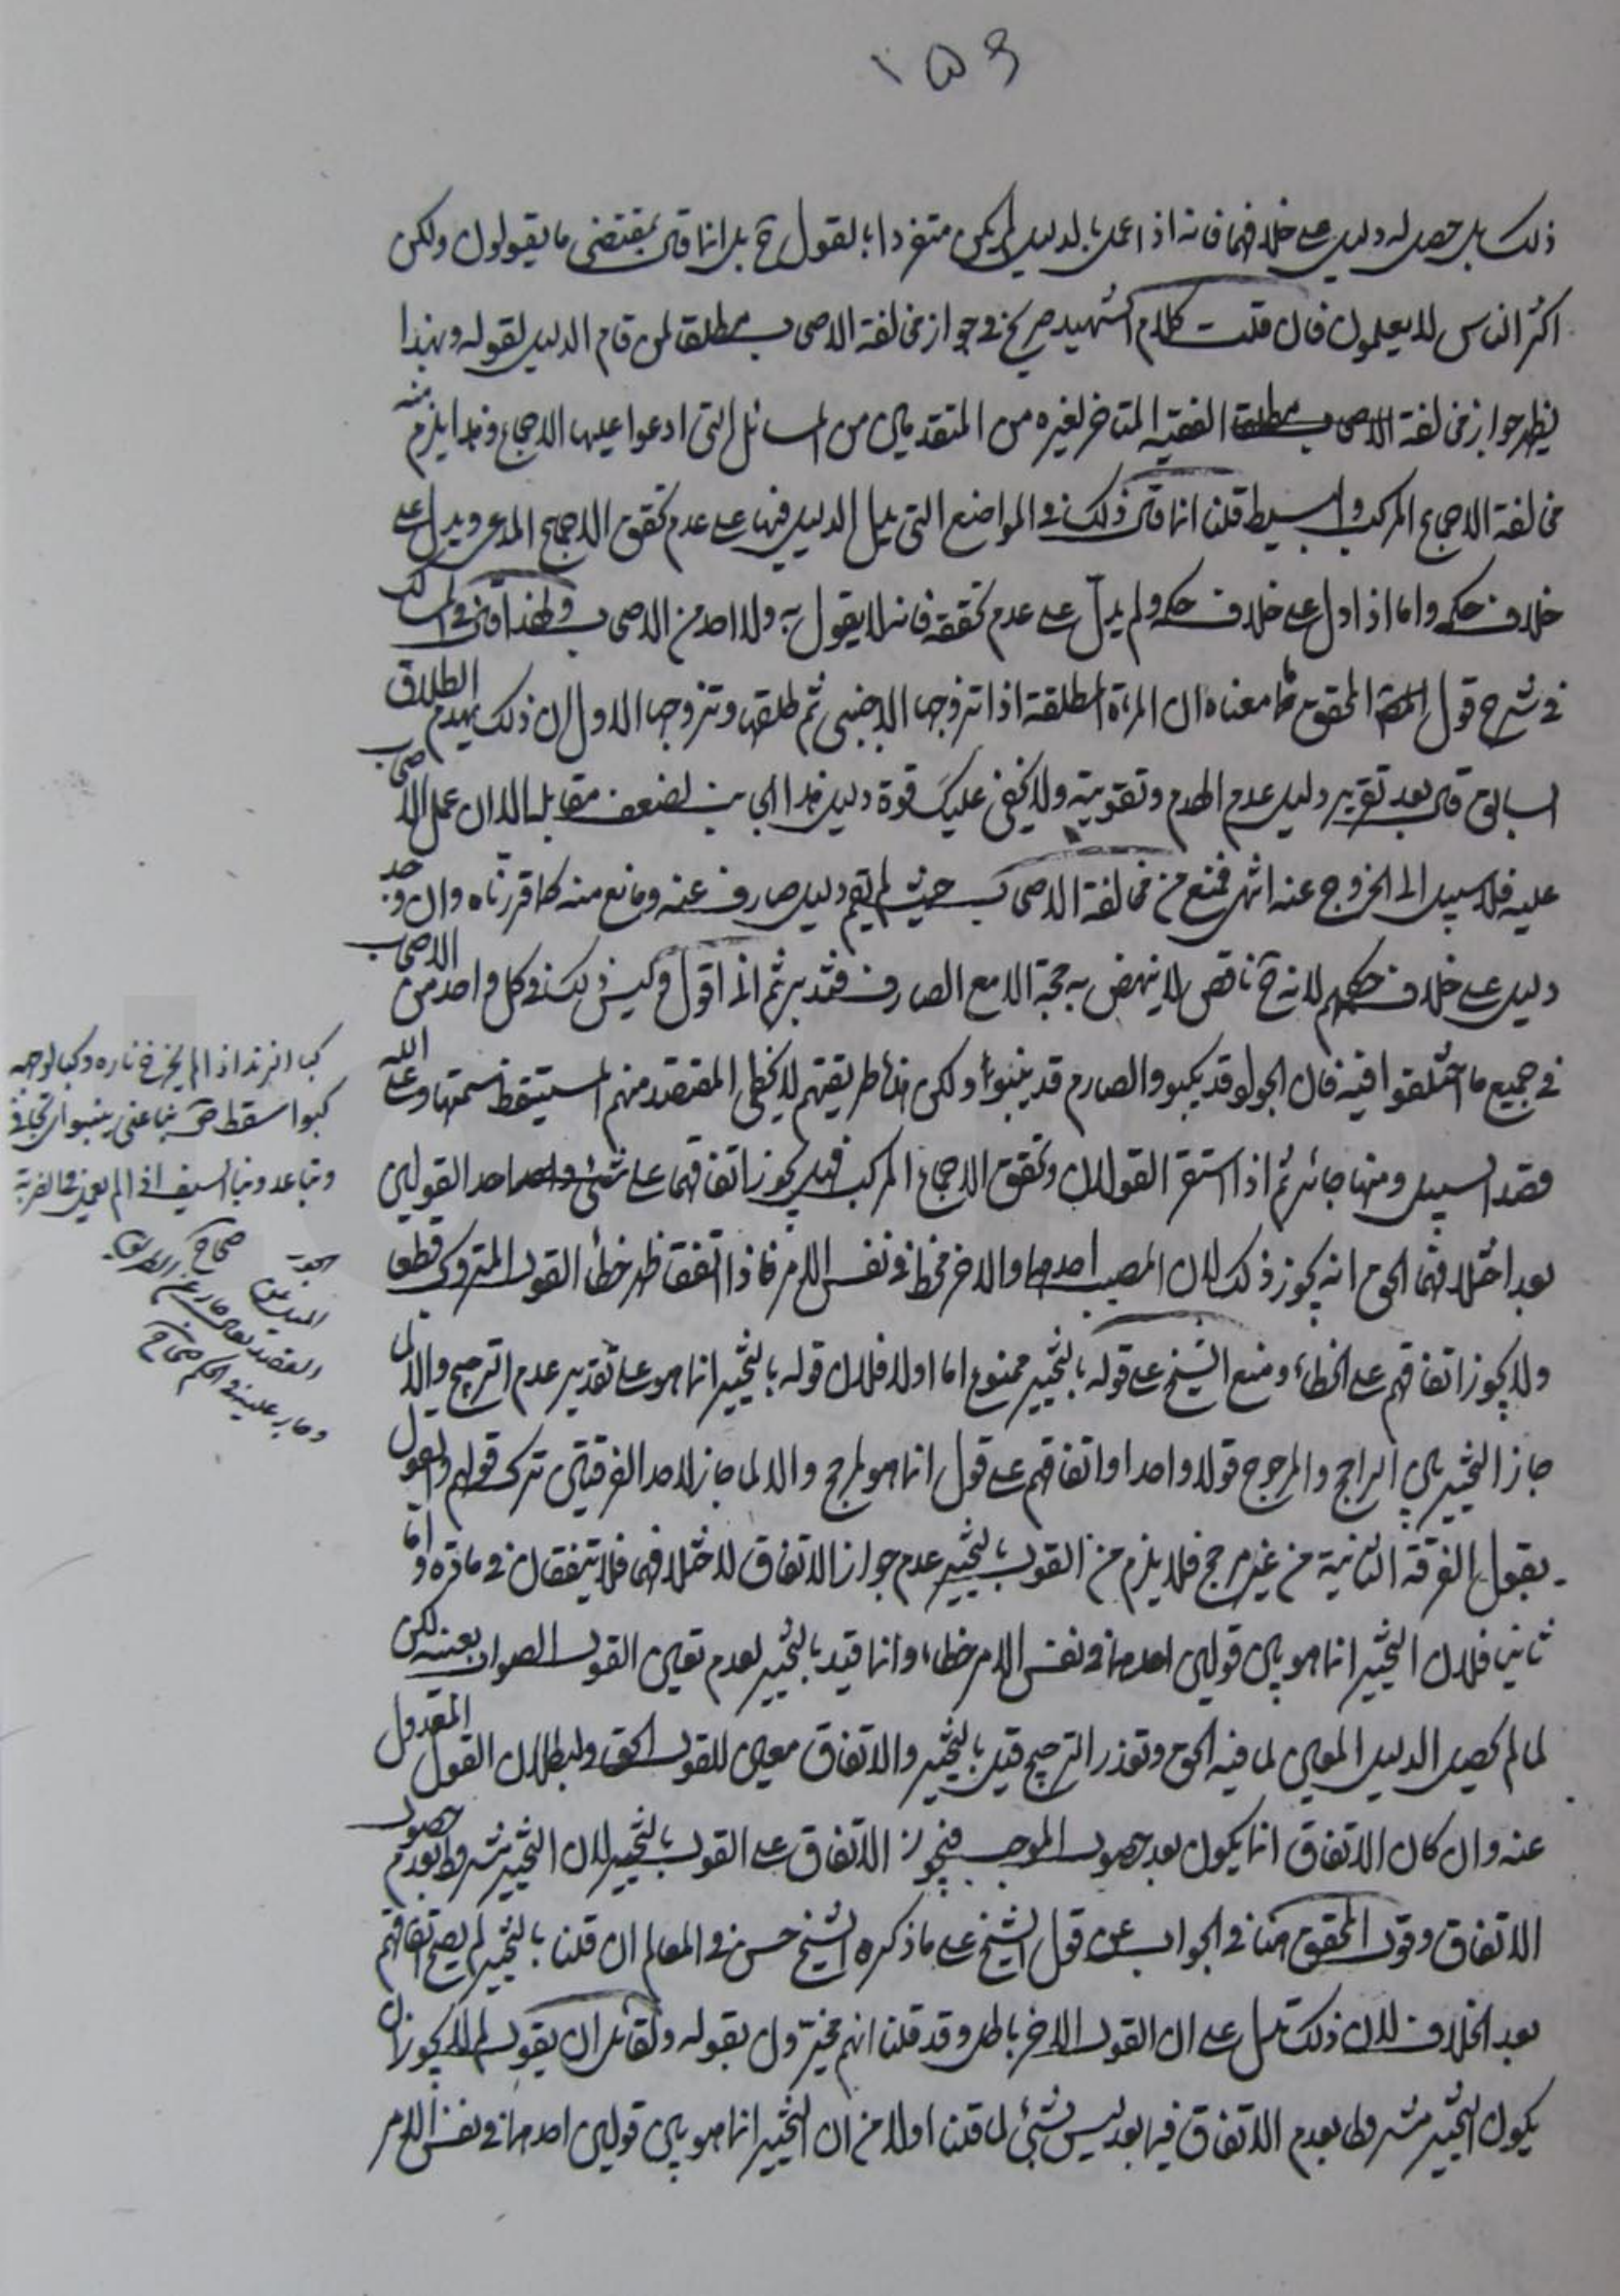 ١٥٩
ذلك بل حصل له دليل على خلافهما فانه اذا عمل بالدليل لم يكن متفردا بالقول ح بل انما قال بمقتضى ما يقولون ولكن
اكثر الناس لا يعلمون فان قلت كلام الشهيد صريح في جواز مخالفة الاصحاب مطلقا لمن قام الدليل لقوله وبهذا
يظهر جواز مخالفة الفقيه المتاخر لغيره من المتقدمين من المسائل التي ادعوا عليها الاجماع وهذا يلزم منه
مخالفة الاجماع المركب والبسيط قلنا انما قال ذلك في المواضع التي يدل الدليل فيها على عدم تحقق الاجماع المدعى ويدل على
خلاف حكمه واما اذا دل على خلاف حكمه ولم يدل على عدم تحققه فانه لا يقول به ولا احد من الاصحاب ولهذا قال في المسالك
في شرح قول المحقق ما معناه ان المرءة المطلقة اذا تزوجها الاجنبي ثم طلقها وتزوجها الاول ان ذلك يهدم الطلاق
السابق قال بعد تقرير دليل عدم الهدم وتقويته ولا يخفى عليك قوة دليل هذا الجانب لضعف مقابله الا ان عمل الاصحاب
عليه فلا سبيل الى الخروج عنه انتهى فمنع من مخالفة الاصحاب حيث لم يقم دليل صارف عنه ومانع منه كما قررناه وان وجد
دليل على خلاف حكمهم لانه ح ناقص لا ينهض به حجة الا مع الصارف فتدبر ثم اني اقول وليس ذلك في كل واحد من الاصحاب
في جميع ما اختلفوا فيه فان الجواد قد يكبو والصارم قد ينبو ولكن هذا طريقتهم لا يخطى المقتصد منهم المستيقظ سمتها وعلى الله
قصد السبيل ومنها جائر ثم اذا استقر القولان وتحقق الاجماع المركب فهل يجوز اتفاقهما على احد القولين
بعد اختلافهما الحق انه يجوز ذلك لان المصيب احدهما والاخر مخطا في نفس الامر فاذا اتفقا ظهر خطأ القول المتروك قطعا
ولا يجوز اتفاقهم على الخطاء ومنع الشيخ على قوله بالتخيير ممنوع اما اولا فلان قوله بالتخيير انما هو على تقدير عدم الترجيح والا لما
جاز التخيير بين الراجح والمرجوح قولا واحدا واتفاقهم على قول انما هو لمرجح والا لما جاز لاحد الفرقتين ترك قولهم والقول
بقول الفرقة الثانية من غير مرجح فلا يلزم من القول بالتخيير عدم جواز الاتفاق لاختلافهما فلا يتفقان في مادة واما
ثانيا فلان التخيير انما هو بين قولين احدهما في نفس الامر خطاء وانما قيل بالتخيير لعدم تعين القول الصواب بعينه لكن
لما لم يحصل الدليل المعين لما فيه الحق وتعذر الترجيح قيل بالتخيير والاتفاق معين للقول الحق ولبطلان القول المعدول
عنه وان كان الاتفاق انما يكون بعد حصول الموجب فيجوز الاتفاق على القول بالتخيير لان التخيير مشروط بعدم حصول
الاتفاق وقول المحقق هنا في الجواب عن قول الشيخ على ما ذكره الشيخ حسن في المعالم ان قلنا بالتخيير لم يصح اتفاقهم
بعد الخلاف لان ذلك يدل على ان القول الاخر باطل وقد قلنا انهم مخيرون بقوله ولقائل ان يقول لم لا يجوز ان
يكون التخيير مشروطا بعدم الاتفاق فيما بعد ليس بشئ لما قلنا اولا من ان التخيير انما هو بين قولين احدهما في نفس الامر
كبا الزند اذا لم يخرج ناره وكبا لوجهه
كبوا سقط ص نبا عني ينبو اي تجافى
وتباعد ونبا السيف اذا لم يعمل في الضريبة
صحاح
الجور الميل عن
القصد يقال جار عن الطريق
وجار عليه في الحكم صحاح